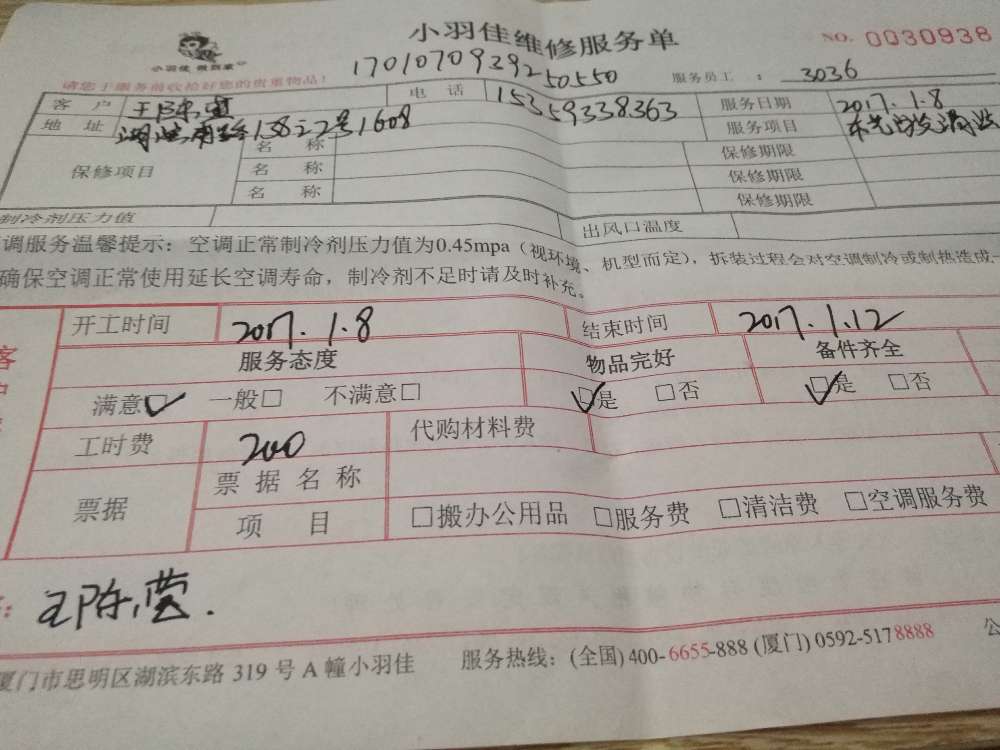 小羽佳维修服务单
NO. 0030938
小羽佳 微到家
请您于服务前收拾好您的贵重物品！
1701070929250550
服务员工 ： 3036
客 户 王陈莹 电 话 15359338363 服务日期 2017.1.8
地 址 湖滨南路158之2号1608 服务项目
保修项目 名 称 保修期限
名 称 保修期限
名 称 保修期限
制冷剂压力值 出风口温度
调服务温馨提示：空调正常制冷剂压力值为0.45mpa（视环境、机型而定），拆装过程会对空调制冷或制热造成一
确保空调正常使用延长空调寿命，制冷剂不足时请及时补充。
开工时间 2017.1.8 结束时间 2017.1.12
服务态度 物品完好 备件齐全
满意☑ 一般□ 不满意□ ☑是 □否 ☑是 □否
工时费 200 代购材料费
票据 票据名称
项 目 □搬办公用品 □服务费 □清洁费 □空调服务费
王陈莹.
厦门市思明区湖滨东路 319 号 A 幢小羽佳 服务热线：(全国) 400-6655-888 (厦门) 0592-5178888 公